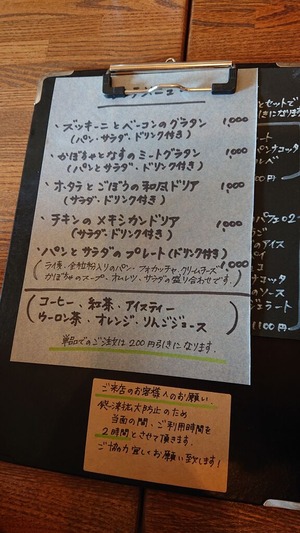 ・ズッキーニとベーコンのグラタン 1,000
(パン・サラダ・ドリンク付き)
・かぼちゃとなすのミートグラタン 1,000
(パンとサラダ・ドリンク付き)
・オクラとごぼうの和風ドリア 1,000
(サラダ・ドリンク付き)
・チキンのメキシカンドリア 1,000
(サラダ・ドリンク付き)
・パンとサラダのプレート(ドリンク付き) 1,000
(ライ麦・全粒粉入りのパン・フォカッチャ、クリームチーズ
かぼちゃのスープ、オムレツ、サラダの盛り合わせです。)
(コーヒー、紅茶、アイスティー
ウーロン茶、オレンジ、りんごジュース)
単品でのご注文は200円引きになります。
ご来店のお客様へのお願い
拡大防止のため
当面の間、ご利用時間を
2時間とさせて頂きます。
ご協力宜しくお願い致します!
セットで
引きになります
パンナコッタ
パフェ
のアイス
ナコッタ
のソース
ジェラート
1100円